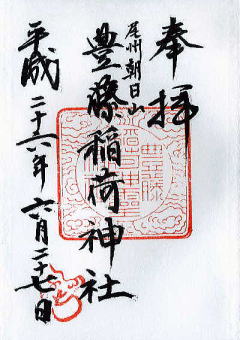 奉拝
尾州朝日山
豊藤稲荷神社
平成二十六年六月二十七日